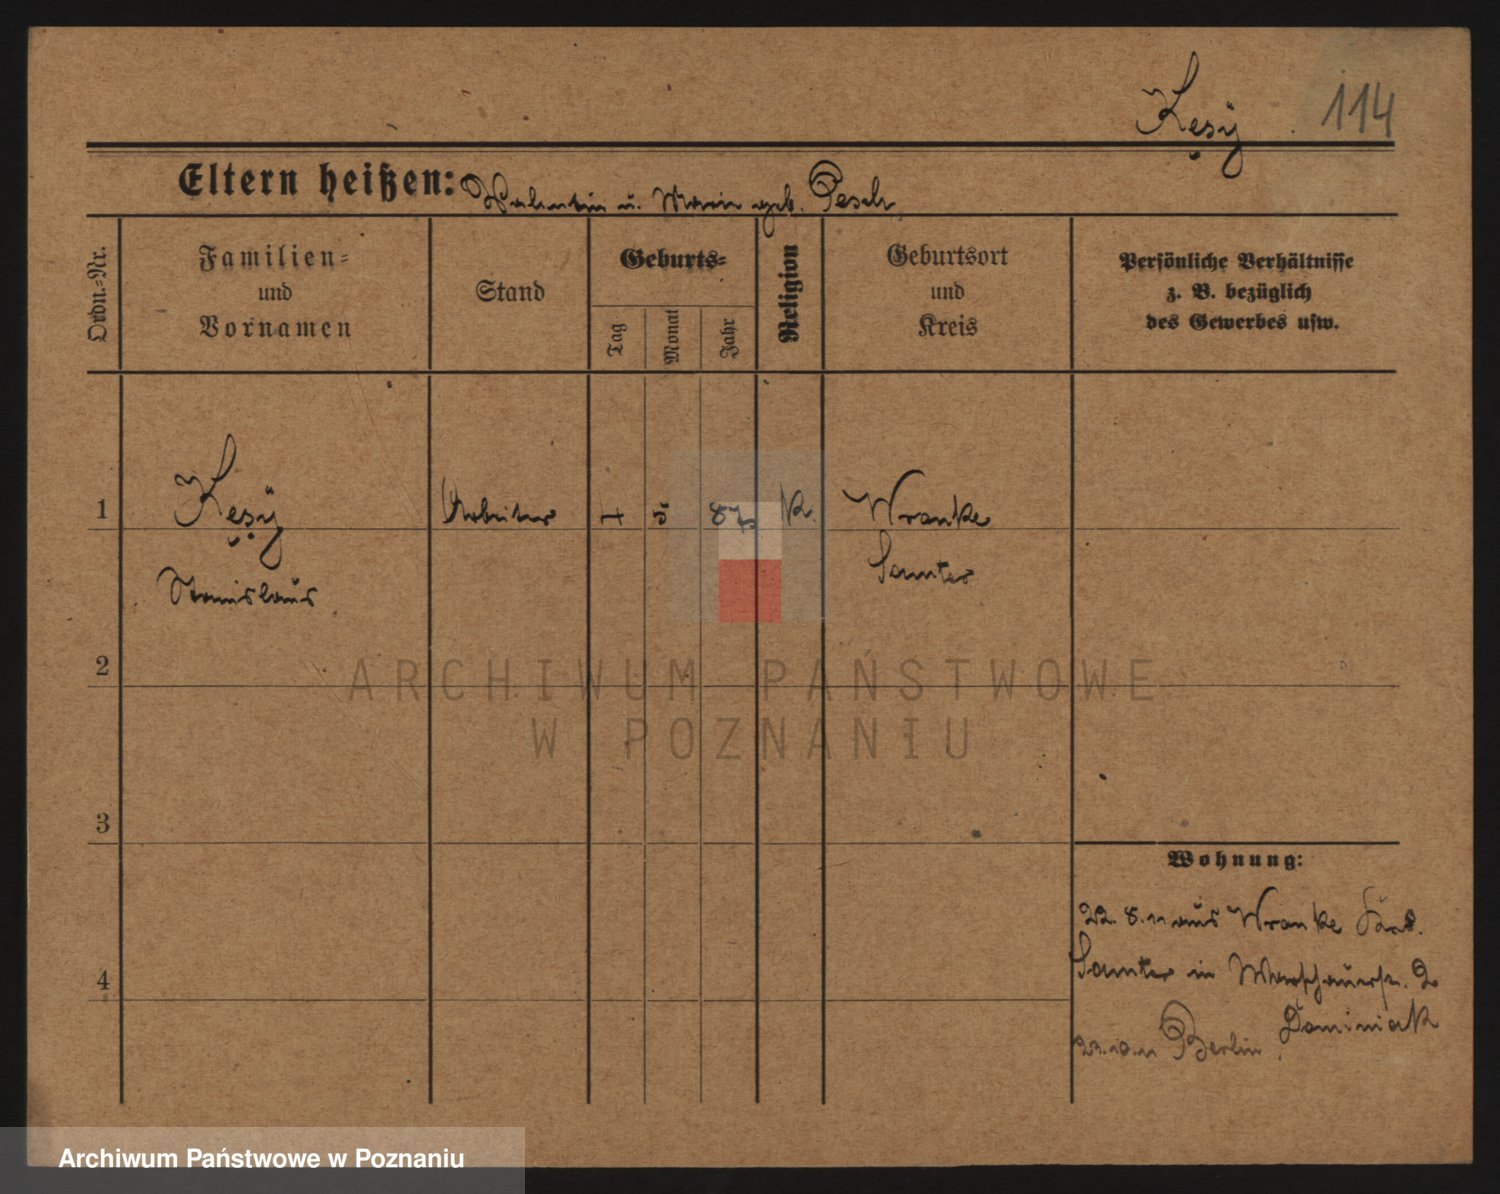 Kesÿ 114
Eltern heißen: Valentin u. Marie geb. Pesch
Ordn.-Nr.
Familien-
und
Vornamen
Stand
Geburts-
Tag
Monat
Jahr
Religion
Geburtsort
und
Kreis
Persönliche Verhältnisse
z. B. bezüglich
des Gewerbes usw.
1 Kesÿ Arbeiter 5 K. Wronke
Stanislaus Samter
2
3
4
Wohnung:
22. 8. 11 aus Wronke
Samter in Warschauerstr. 2
Dominiak
Berlin
ARCHIWUM PAŃSTWOWE
W POZNANIU
Archiwum Państwowe w Poznaniu